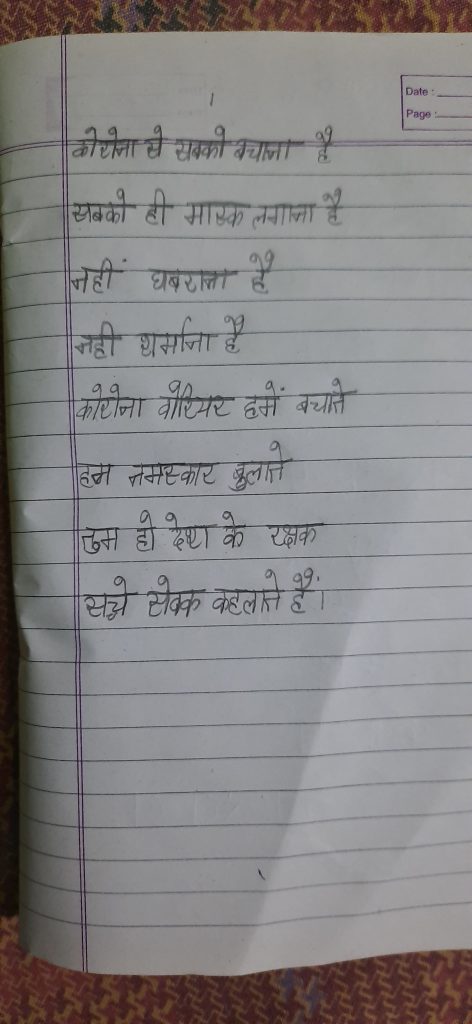 Date :
Page :
कोरोना से सबको बचाना है
सबको ही मास्क लगाना है
नहीं घबराना है
नही शर्माना है
कोरोना वोरियर हमें बचाते
हम नमस्कार बुलाते
तुम हो देश के रक्षक
सच्चे सेवक कहलाते हैं।